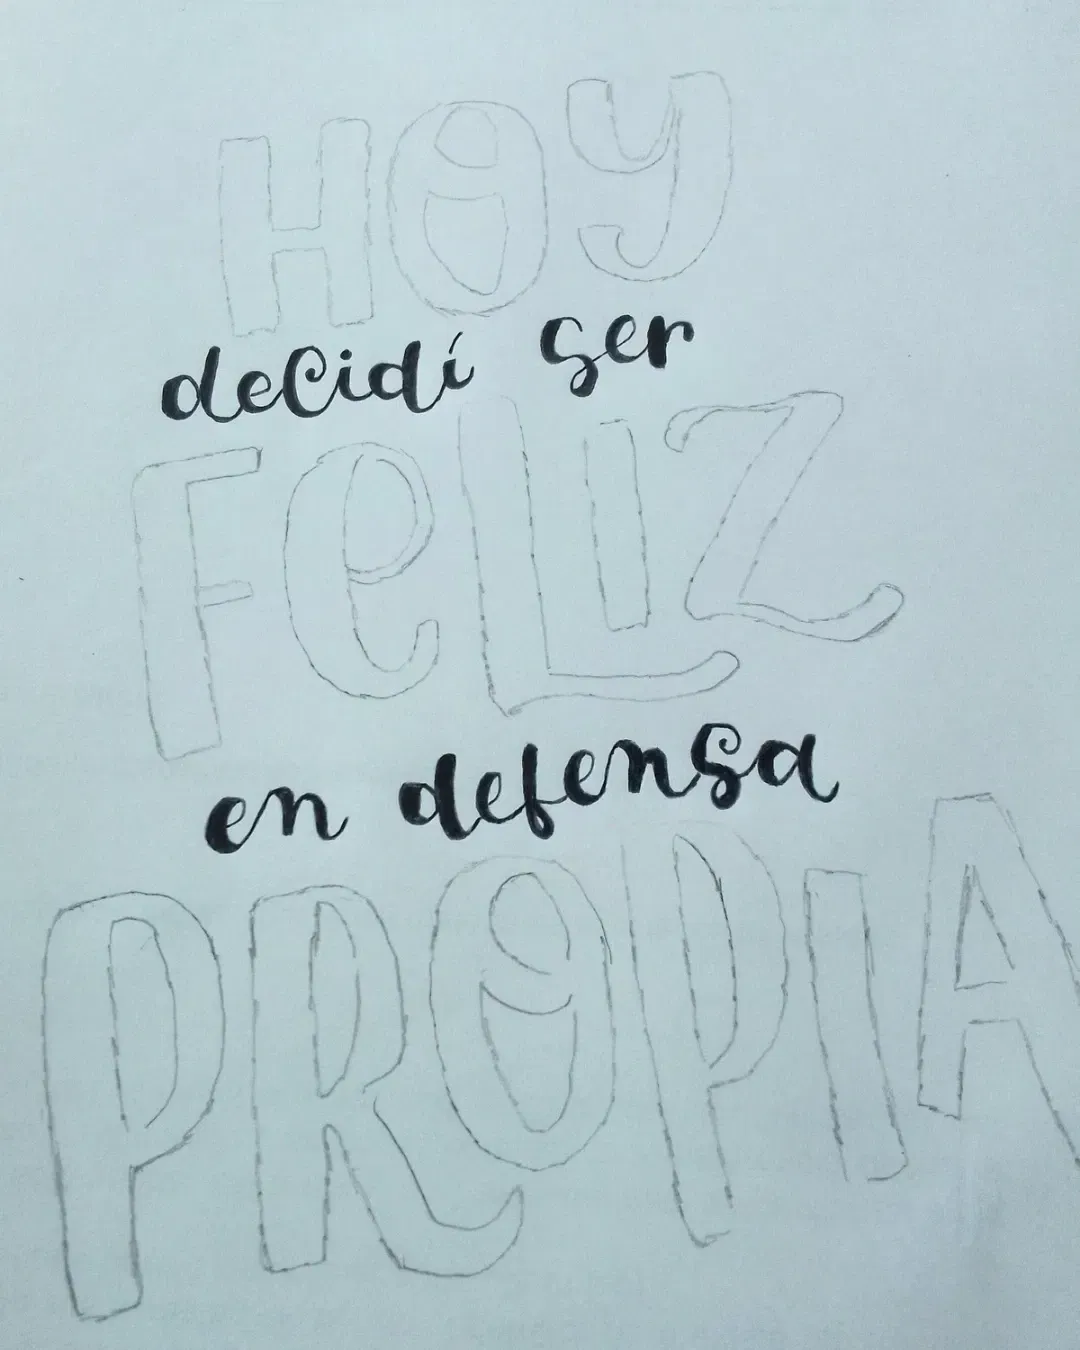 HOY
decidí ser
FeLIZ
en defensa
PROPIA